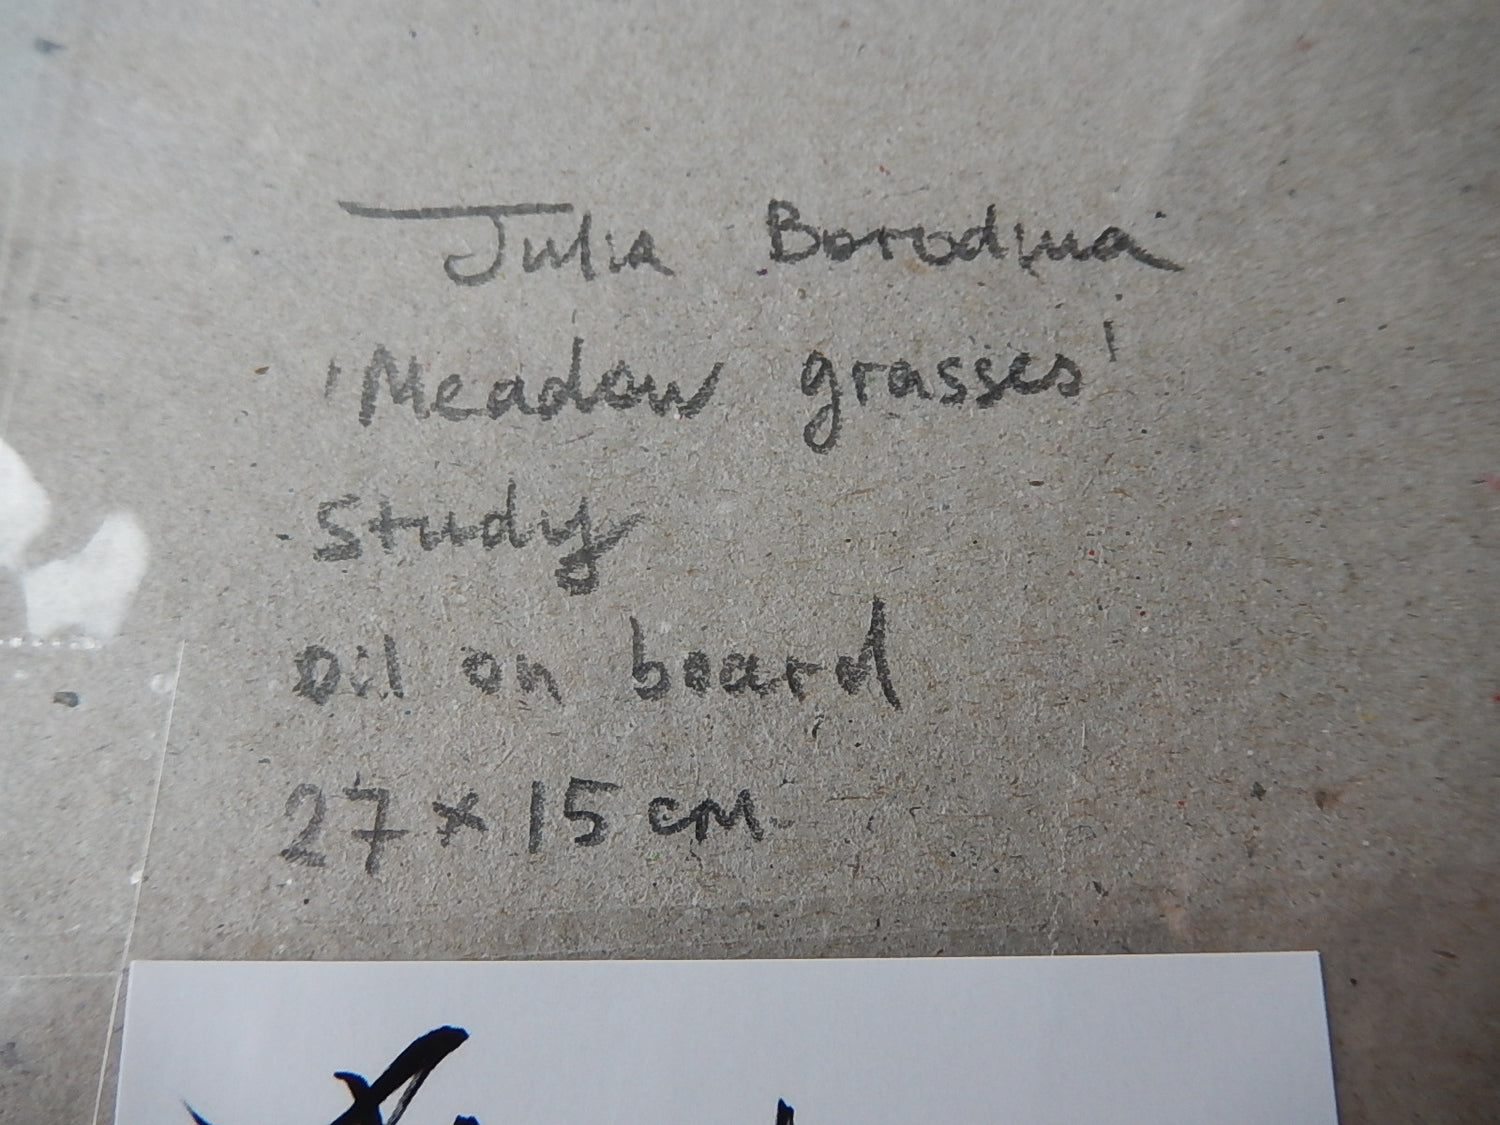 Julia Borodina
'Meadow grasses'
study
oil on board
27 x 15 cm